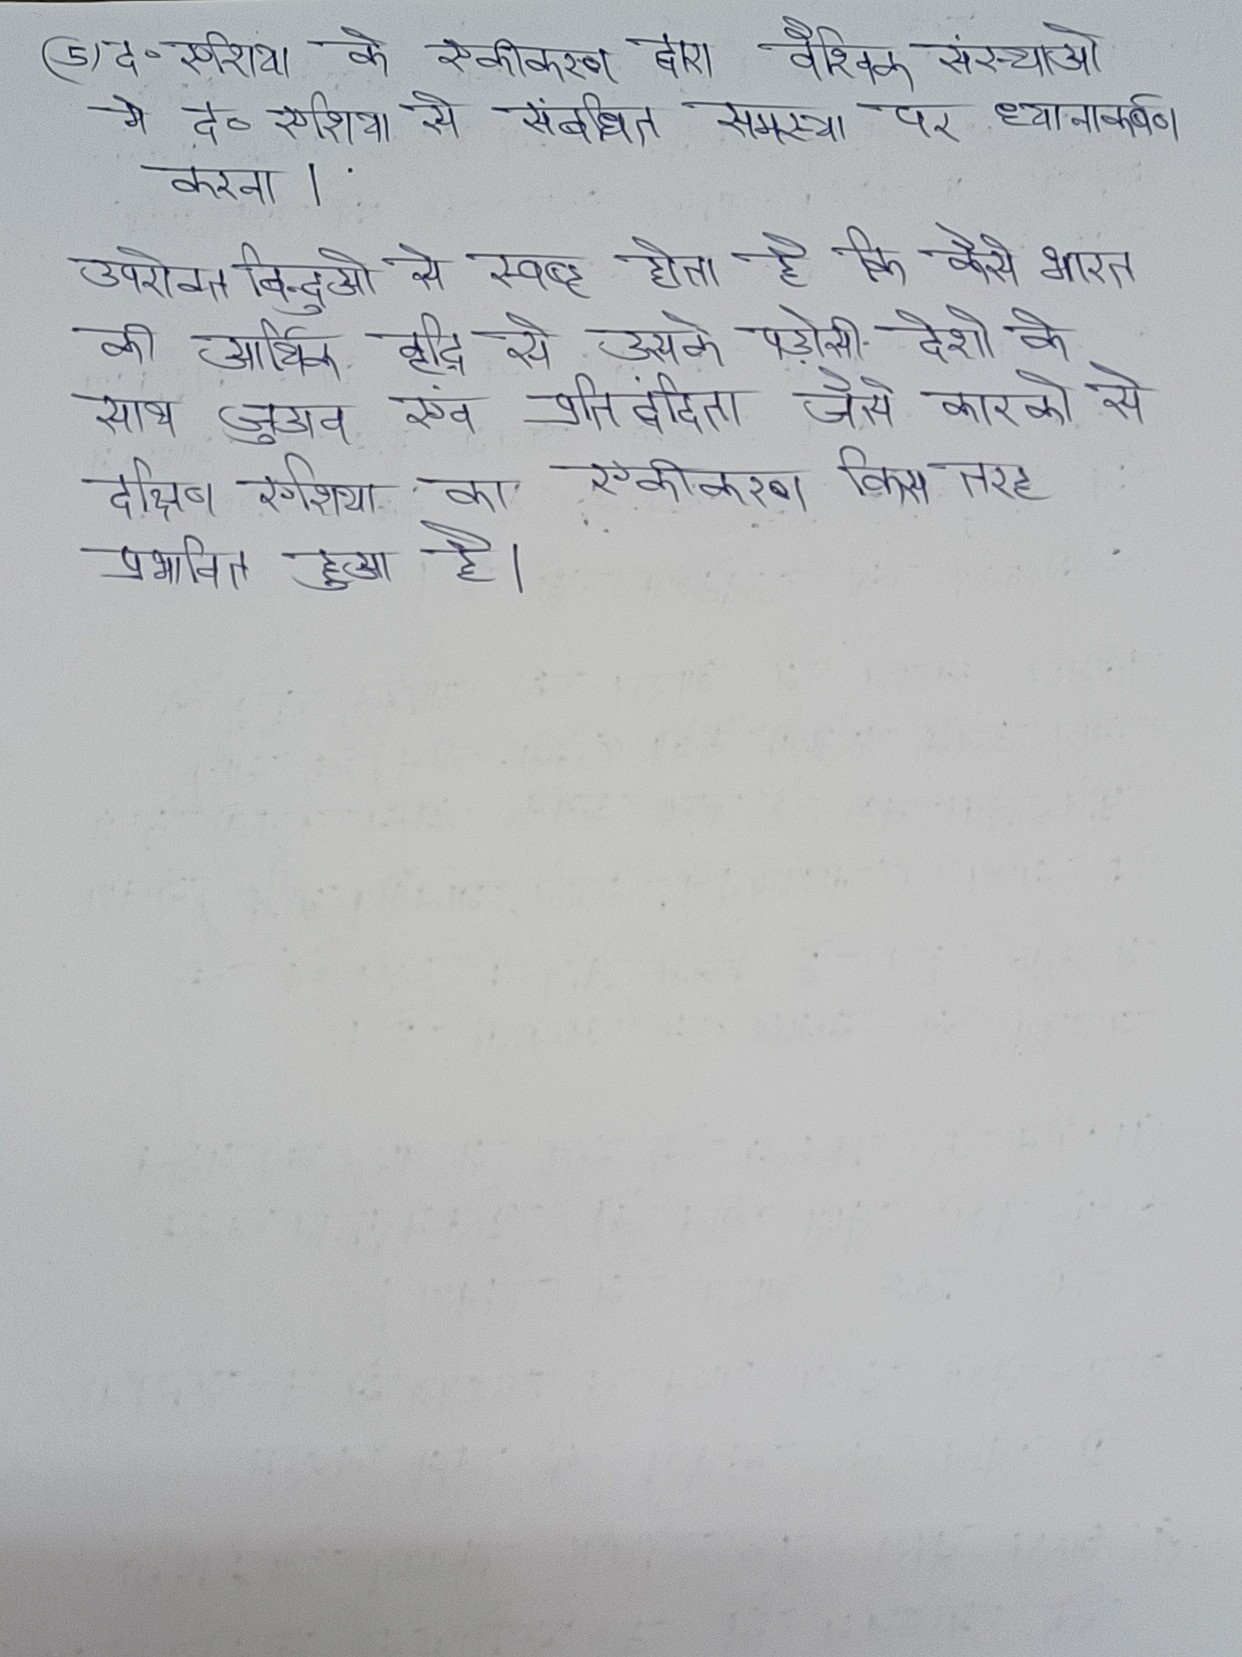 (5) द॰ एशिया के एकीकरण द्वारा वैश्विक संस्थाओ
मे द॰ एशिया से संबंधित समस्या पर ध्यानाकर्षण
करना ।
उपरोक्त बिन्दुओ से स्पष्ट होता है कि कैसे भारत
की आर्थिक वृद्धि से उसके पड़ोसी देशो के
साथ जुडाव एंव प्रतिद्वंदिता जैसे कारको से
दक्षिण एशिया का एकीकरण किस तरह
प्रभावित हुआ है ।